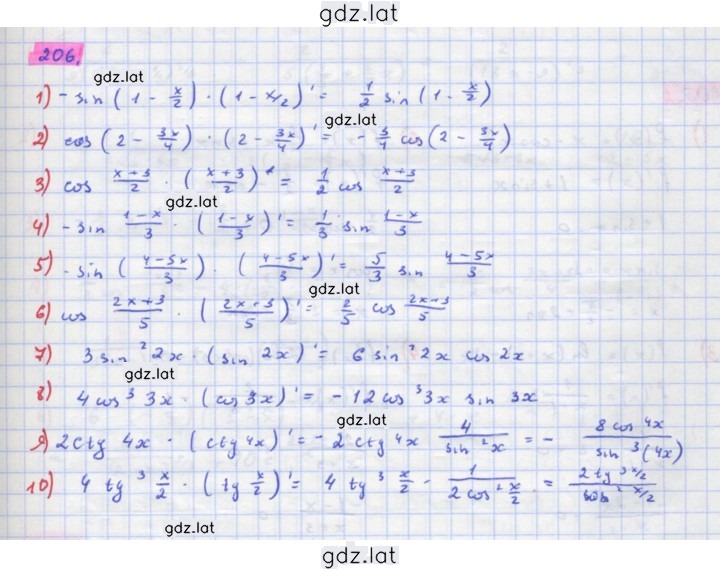 gdz.lat
206.
gdz.lat
1) -sin (1 - x/2) · (1 - x/2)' = 1/2 sin (1 - x/2)
gdz.lat
2) cos (2 - 3x/4) · (2 - 3x/4)' = - 3/4 cos (2 - 3x/4)
3) cos (x+3)/2 · ((x+3)/2)' = 1/2 cos (x+3)/2
gdz.lat
4) -sin (1-x)/3 · ((1-x)/3)' = 1/3 sin (1-x)/3
5) -sin ((4-5x)/3) · ((4-5x)/3)' = 5/3 sin (4-5x)/3
gdz.lat
6) cos (2x+3)/5 · ((2x+3)/5)' = 2/5 cos (2x+3)/5
7) 3 sin² 2x · (sin 2x)' = 6 sin² 2x cos 2x
gdz.lat
8) 4 cos³ 3x · (cos 3x)' = - 12 cos³ 3x sin 3x
gdz.lat
9) 2 ctg 4x · (ctg 4x)' = - 2 ctg 4x 4/(sin² x) = - (8 cos 4x)/(sin³(4x))
10) 4 tg³ x/2 · (tg x/2)' = 4 tg³ x/2 · 1/(2 cos² x/2) = (2 tg³ x/2)/(cos² x/2)
gdz.lat
gdz.lat